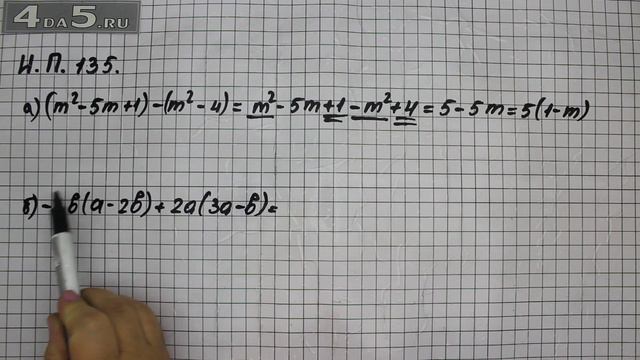 4DA5.RU
Н.П. 135.
а) (m²-5m+1)-(m²-4)= m²-5m+1-m²+4=5-5m=5(1-m)
б) - в(а-2в)+2а(3а-в)=